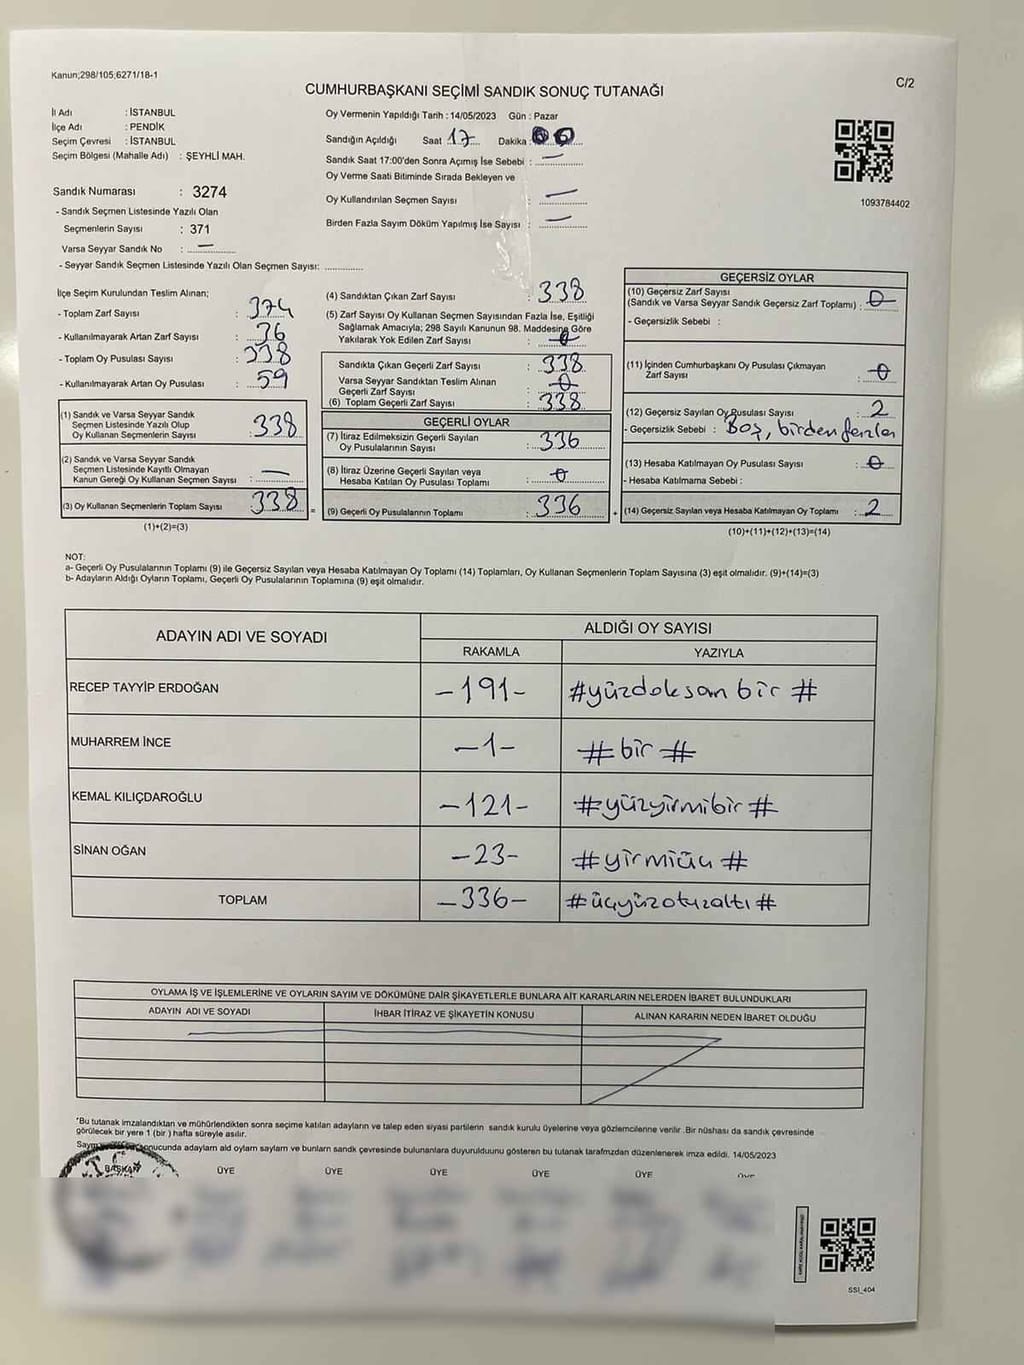 Kanun;298/105;6271/18-1
C/2
CUMHURBAŞKANI SEÇİMİ SANDIK SONUÇ TUTANAĞI
İl Adı : İSTANBUL
İlçe Adı : PENDİK
Seçim Çevresi : İSTANBUL
Seçim Bölgesi (Mahalle Adı) : ŞEYHLİ MAH.
Sandık Numarası : 3274
- Sandık Seçmen Listesinde Yazılı Olan
Seçmenlerin Sayısı : 371
Varsa Seyyar Sandık No : —
- Seyyar Sandık Seçmen Listesinde Yazılı Olan Seçmen Sayısı: ............
Oy Vermenin Yapıldığı Tarih : 14/05/2023 Gün : Pazar
Sandığın Açıldığı Saat 17 Dakika : 00
Sandık Saat 17:00'den Sonra Açımış İse Sebebi : —
Oy Verme Saati Bitiminde Sırada Bekleyen ve
Oy Kullandırılan Seçmen Sayısı : —
Birden Fazla Sayım Döküm Yapılmış İse Sayısı : —
1093784402
İlçe Seçim Kurulundan Teslim Alınan;
- Toplam Zarf Sayısı : 374
- Kullanılmayarak Artan Zarf Sayısı : 36
- Toplam Oy Pusulası Sayısı : 338
- Kullanılmayarak Artan Oy Pusulası : 59
(1) Sandık ve Varsa Seyyar Sandık
Seçmen Listesinde Yazılı Olup
Oy Kullanan Seçmenlerin Sayısı : 338
(2) Sandık ve Varsa Seyyar Sandık
Seçmen Listesinde Kayıtlı Olmayan
Kanun Gereği Oy Kullanan Seçmen Sayısı : —
(3) Oy Kullanan Seçmenlerin Toplam Sayısı : 338 =
(1)+(2)=(3)
(4) Sandıktan Çıkan Zarf Sayısı : 338
(5) Zarf Sayısı Oy Kullanan Seçmen Sayısından Fazla İse, Eşitliği
Sağlamak Amacıyla; 298 Sayılı Kanunun 98. Maddesine Göre
Yakılarak Yok Edilen Zarf Sayısı : 0
Sandıkta Çıkan Geçerli Zarf Sayısı : 338
Varsa Seyyar Sandıktan Teslim Alınan
Geçerli Zarf Sayısı : 0
(6) Toplam Geçerli Zarf Sayısı : 338
GEÇERLİ OYLAR
(7) İtiraz Edilmeksizin Geçerli Sayılan
Oy Pusulasının Sayısı : 336
(8) İtiraz Üzerine Geçerli Sayılan veya
Hesaba Katılan Oy Pusulası Toplamı : 0
(9) Geçerli Oy Pusulalarının Toplamı : 336 +
GEÇERSİZ OYLAR
(10) Geçersiz Zarf Sayısı
(Sandık ve Varsa Seyyar Sandık Geçersiz Zarf Toplamı) : 0
- Geçersizlik Sebebi :
(11) İçinden Cumhurbaşkanı Oy Pusulası Çıkmayan
Zarf Sayısı : 0
(12) Geçersiz Sayılan Oy Pusulası Sayısı : 2
- Geçersizlik Sebebi : Boş, birden fazla
(13) Hesaba Katılmayan Oy Pusulası Sayısı : 0
- Hesaba Katılmama Sebebi :
(14) Geçersiz Sayılan veya Hesaba Katılmayan Oy Toplamı : 2
(10)+(11)+(12)+(13)=(14)
NOT:
a- Geçerli Oy Pusulalarının Toplamı (9) ile Geçersiz Sayılan veya Hesaba Katılmayan Oy Toplamı (14) Toplamları, Oy Kullanan Seçmenlerin Toplam Sayısına (3) eşit olmalıdır. (9)+(14)=(3)
b- Adayların Aldığı Oyların Toplamı, Geçerli Oy Pusulalarının Toplamına (9) eşit olmalıdır.
ADAYIN ADI VE SOYADI
ALDIĞI OY SAYISI
RAKAMLA YAZIYLA
RECEP TAYYİP ERDOĞAN -191- #yüzdoksan bir #
MUHARREM İNCE -1- # bir #
KEMAL KILIÇDAROĞLU -121- #yüzyirmibir #
SİNAN OĞAN -23- #yirmiüç #
TOPLAM -336- #üçyüzotuzaltı #
OYLAMA İŞ VE İŞLEMLERİNE VE OYLARIN SAYIM VE DÖKÜMÜNE DAİR ŞİKAYETLERLE BUNLARA AİT KARARLARIN NELERDEN İBARET BULUNDUKLARI
ADAYIN ADI VE SOYADI İHBAR İTİRAZ VE ŞİKAYETİN KONUSU ALINAN KARARIN NEDEN İBARET OLDUĞU
*Bu tutanak imzalandıktan ve mühürlendikten sonra seçime katılan adayların ve talep eden siyasi partilerin sandık kurulu üyelerine veya gözlemcilerine verilir .Bir nüshası da sandık çevresinde
görülecek bir yere 1 (bir ) hafta süreyle asılır.
onucunda adayların ald oyların sayların ve bunların sandık çevresinde bulunanlara duyurulduunu gösteren bu tutanak tarafmzdan düzenlenerek imza edildi. 14/05/2023
BAŞKAN ÜYE ÜYE ÜYE ÜYE ÜYE
SSI_404